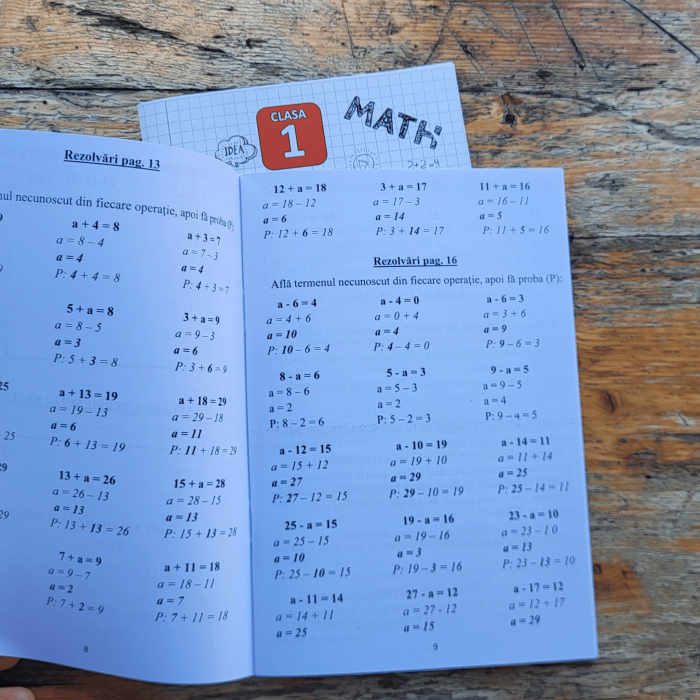 CLASA
1
MATH
IDEA
2+2=4
Rezolvări pag. 13
necunoscut din fiecare operație, apoi fă proba (P)
a + 4 = 8
a + 3 = 7
a = 8 – 4
a = 7 – 3
a = 4
a = 4
P: 4 + 4 = 8
P: 4 + 3 = 7
5 + a = 8
3 + a = 9
a = 8 – 5
a = 9 – 3
a = 3
a = 6
P: 5 + 3 = 8
P: 3 + 6 = 9
25
a + 13 = 19
a + 18 = 29
a = 19 – 13
a = 29 – 18
a = 6
a = 11
25
P: 6 + 13 = 19
P: 11 + 18 = 29
29
13 + a = 26
15 + a = 28
a = 26 – 13
a = 28 – 15
a = 13
a = 13
29
P: 13 + 13 = 26
P: 15 + 13 = 28
7 + a = 9
a + 11 = 18
a = 9 – 7
a = 18 – 11
a = 2
a = 7
P: 7 + 2 = 9
P: 7 + 11 = 18
8
12 + a = 18 3 + a = 17 11 + a = 16
a = 18 – 12 a = 17 – 3 a = 16 – 11
a = 6 a = 14 a = 5
P: 12 + 6 = 18 P: 3 + 14 = 17 P: 11 + 5 = 16
Rezolvări pag. 16
Află termenul necunoscut din fiecare operație, apoi fă proba (P):
a - 6 = 4 a - 4 = 0 a - 6 = 3
a = 4 + 6 a = 0 + 4 a = 3 + 6
a = 10 a = 4 a = 9
P: 10 – 6 = 4 P: 4 – 4 = 0 P: 9 – 6 = 3
8 - a = 6 5 - a = 3 9 - a = 5
a = 8 – 6 a = 5 – 3 a = 9 – 5
a = 2 a = 2 a = 4
P: 8 – 2 = 6 P: 5 – 2 = 3 P: 9 – 4 = 5
a - 12 = 15 a - 10 = 19 a - 14 = 11
a = 15 + 12 a = 19 + 10 a = 11 + 14
a = 27 a = 29 a = 25
P: 27 – 12 = 15 P: 29 – 10 = 19 P: 25 – 14 = 11
25 - a = 15 19 - a = 16 23 - a = 10
a = 25 – 15 a = 19 – 16 a = 23 – 10
a = 10 a = 3 a = 13
P: 25 – 10 = 15 P: 19 – 3 = 16 P: 23 – 13 = 10
a - 11 = 14 27 - a = 12 a - 17 = 12
a = 14 + 11 a = 27 - 12 a = 12 + 17
a = 25 a = 15 a = 29
9